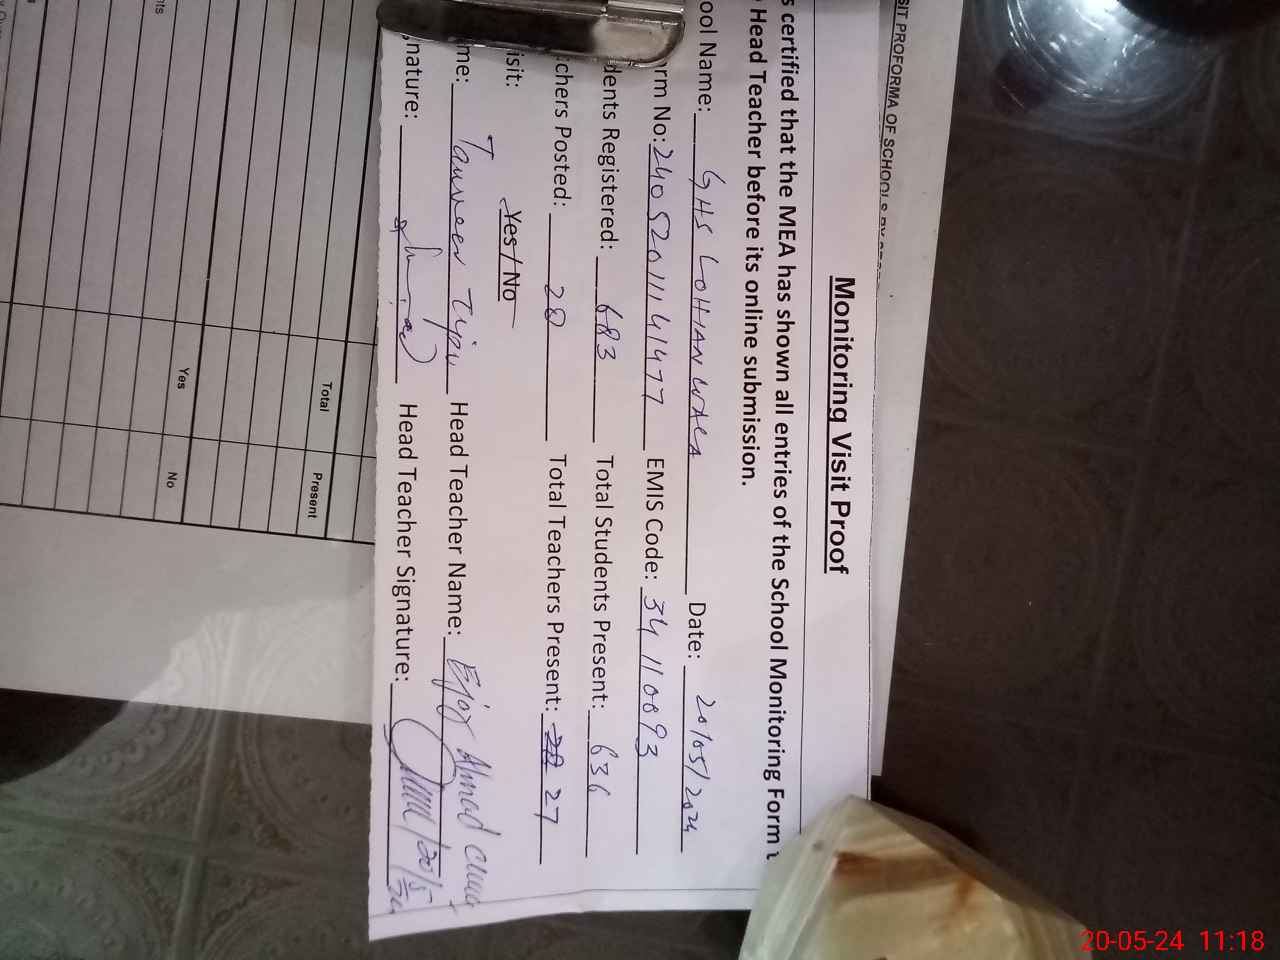 SIT PROFORMA OF SCHOOLS BY
Monitoring Visit Proof
s certified that the MEA has shown all entries of the School Monitoring Form t
Head Teacher before its online submission.
ool Name: GHS LOHIANWALA Date: 20/05/2024
rm No: 24052011141477 EMIS Code: 34110093
dents Registered: 683 Total Students Present: 636
chers Posted: 28 Total Teachers Present: 28 27
isit: Yes / No
me: Tanveer Tipu Head Teacher Name: Ejaz Ahmad
nature: Head Teacher Signature: 20/5/24
Total Present
Yes No
nts
20-05-24 11:18